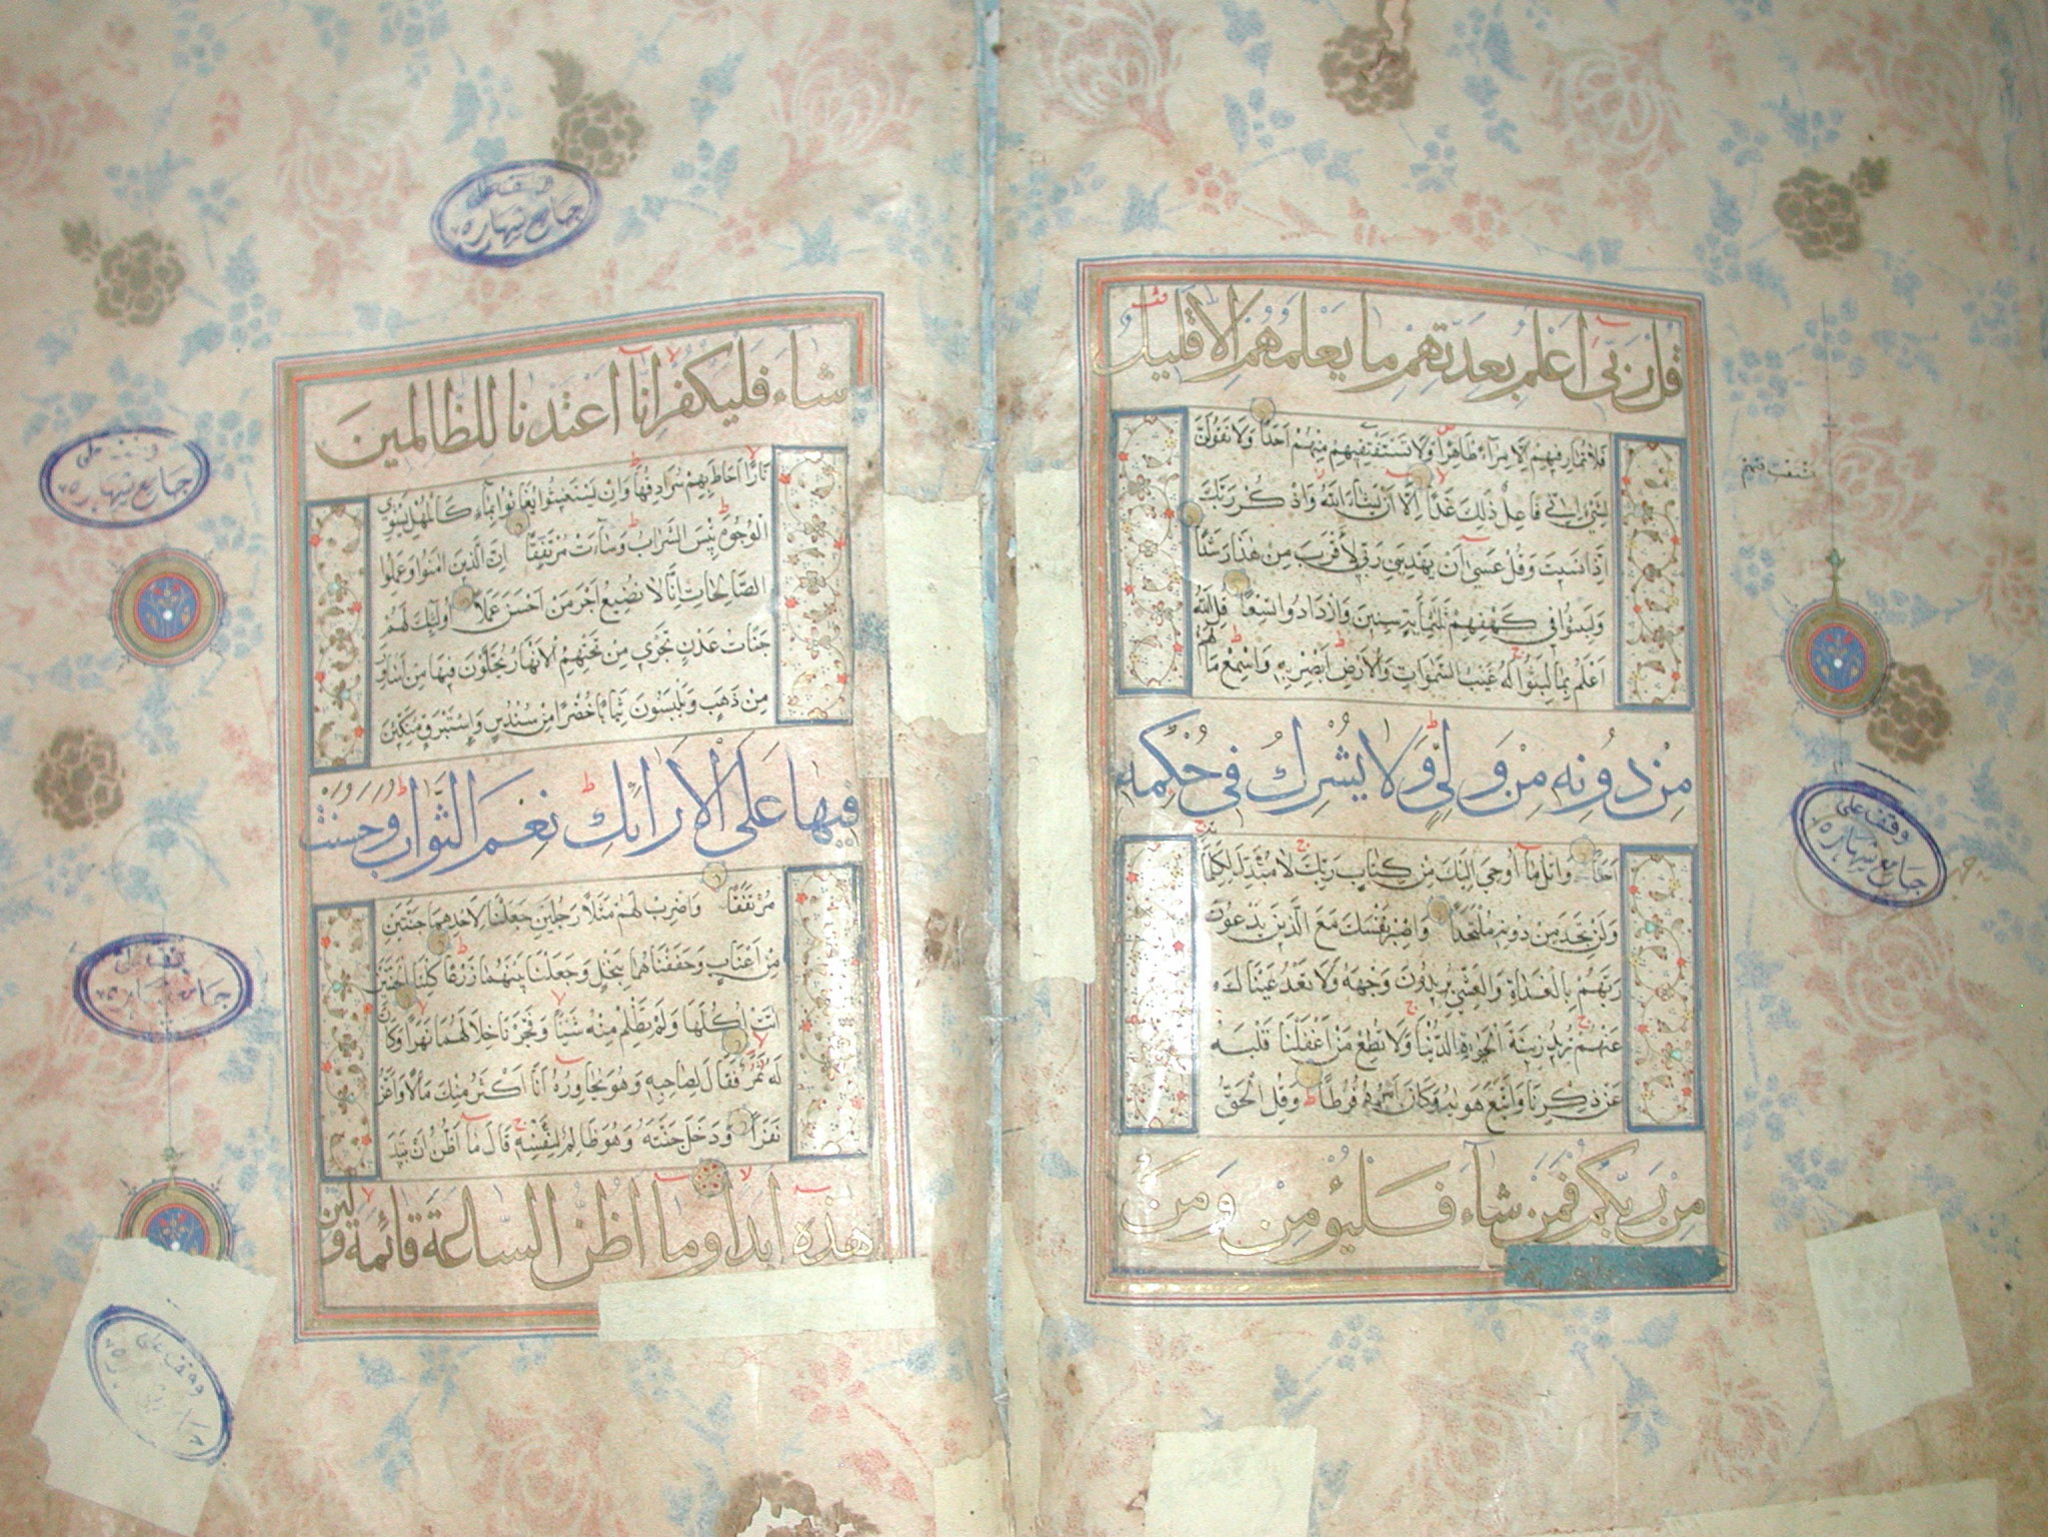 قل ربي اعلم بعدتهم ما يعلمهم الا قليل
فلا تمار فيهم الا مراء ظاهرا ولا تستفت فيهم منهم احدا ولا تقولن
لشيء اني فاعل ذلك غدا الا ان يشاء الله واذكر ربك
اذا نسيت وقل عسى ان يهدين ربي لأقرب من هذا رشدا
ولبثوا في كهفهم ثلثمأية سنين وازدادوا تسعا قل الله
اعلم بما لبثوا له غيب السموات والارض ابصر به واسمع ما لهم
من دونه من ولي ولا يشرك في حكمه
احدا واتل ما اوحي اليك من كتاب ربك لا مبدل لكلماته
ولن تجد من دونه ملتحدا واصبر نفسك مع الذين يدعون
ربهم بالغداة والعشي يريدون وجهه ولا تعد عيناك
عنهم تريد زينة الحيوة الدنيا ولا تطع من اغفلنا قلبه
عن ذكرنا واتبع هويه وكان امره فرطا وقل الحق
من ربكم فمن شاء فليؤمن ومن
وقف على
جامع شهاره
شاء فليكفر انا اعتدنا للظالمين
نارا احاط بهم سرادقها وان يستغيثوا يغاثوا بماء كالمهل يشوي
الوجوه بئس الشراب وساءت مرتفقا ان الذين امنوا وعملوا
الصالحات انا لا نضيع اجر من احسن عملا اولئك لهم
جنات عدن تجري من تحتهم الانهار يحلون فيها من اساور
من ذهب ويلبسون ثيابا خضرا من سندس واستبرق متكئين
فيها على الارائك نعم الثواب وحسنت
مرتفقا واضرب لهم مثلا رجلين جعلنا لاحدهما جنتين
من اعناب وحففناهما بنخل وجعلنا بينهما زرعا كلتا الجنتين
اتت اكلها ولم تظلم منه شيئا وفجرنا خلالهما نهرا وكان
له ثمر فقال لصاحبه وهو يحاوره انا اكثر منك مالا واعز
نفرا ودخل جنته وهو ظالم لنفسه قال ما اظن ان تبيد
هذه ابدا وما اظن الساعة قائمة ولئن
وقف على
جامع شهاره
وقف على
جامع شهاره
وقف على
جامع شهاره
وقف على